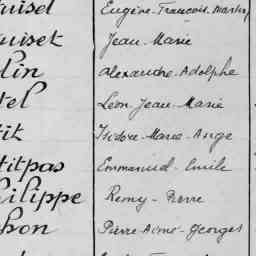 uisel Eugène-François-Martin
uiset Jean-Marie
lin Alexandre-Adolphe
tel Léon-Jean-Marie
tit Isidore-Marie-Ange
titpas Emmanuel-Emile
hilippe Remy-Pierre
hon Pierre-Aimé-Georges